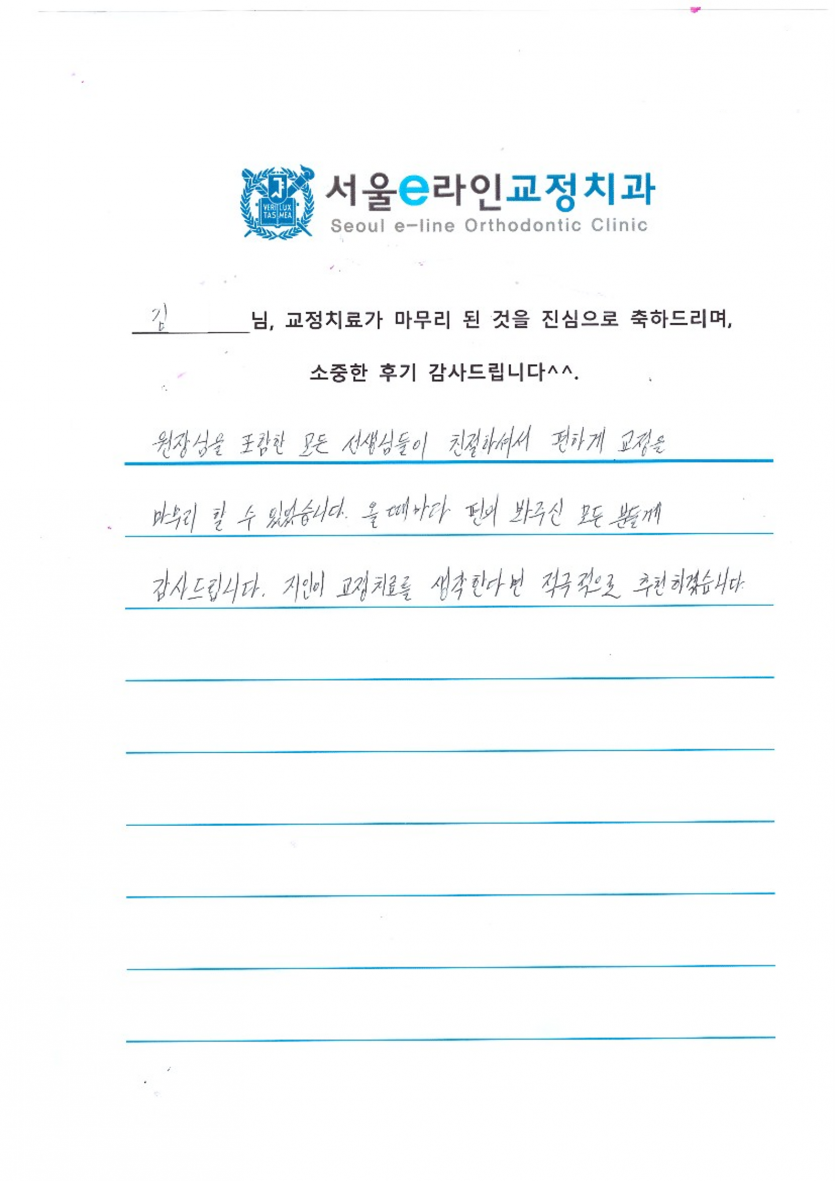 VERI LUX
TAS MEA
서울e라인교정치과
Seoul e-line Orthodontic Clinic
김 님, 교정치료가 마무리 된 것을 진심으로 축하드리며,
소중한 후기 감사드립니다^^.
원장님을 포함한 모든 선생님들이 친절하셔서 편하게 교정을
마무리 할 수 있었습니다. 올 때마다 편의 봐주신 모든 분들께
감사드립니다. 지인이 교정치료를 생각한다면 적극적으로 추천하겠습니다.